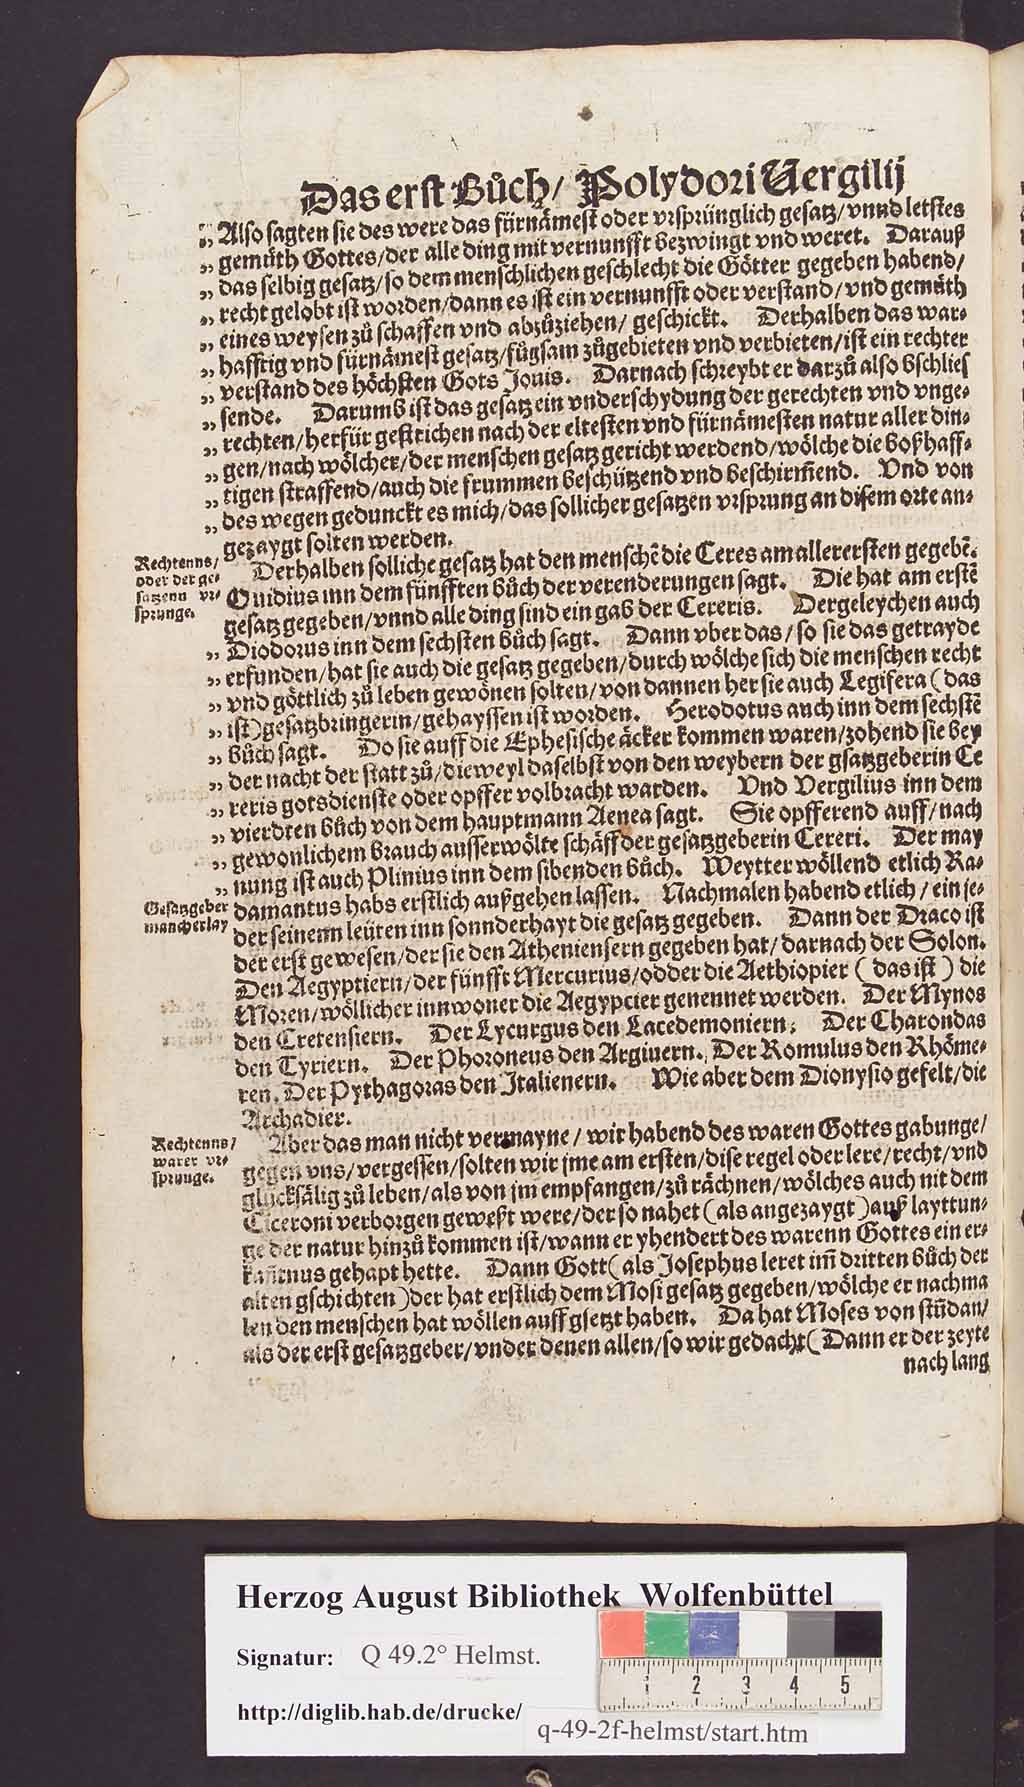 Das erst Bůch/ Polydori Vergilij
„ Also sagten sie des were das fürnämest oder vrsprünglich gesatz/vnnd letstes
„ gemůth Gottes/der alle ding mit vernunfft bezwingt vnd weret. Darauß
„ das selbig gesatz/so dem menschlichen geschlecht die Götter gegeben habend/
„ recht gelobt ist worden/dann es ist ein vernunfft oder verstand/vnd gemůth
„ eines weysen zů schaffen vnd abzůziehen/ geschickt. Derhalben das war-
„ hafftig vnd fürnämest gesatz/fůgsam zůgebieten vnd verbieten/ist ein rechter
„ verstand des höchsten Gots Jouis. Darnach schreybt er darzů also bschlies
„ sende. Darumb ist das gesatz ein vnderschydung der gerechten vnd vnge-
„ rechten/herfür gestrichen nach der eltesten vnd fürnämesten natur aller din-
„ gen/nach wölcher/der menschen gesatz gericht werdend/wölche die boßhaff-
„ tigen straffend/auch die frummen beschützend vnd beschirm̄end. Vnd von
„ des wegen gedunckt es mich/das sollicher gesatzen vrsprung an disem orte an-
gezaygt solten werden.
Rechtenns/
oder der ge-
satzenn vr-
sprunge.
Derhalben solliche gesatz hat den menschē die Ceres am allerersten gegebē.
Ouidius inn dem fünfften bůch der verenderungen sagt. Die hat am erstē
gesatz gegeben/vnnd alle ding sind ein gab der Cereris. Dergeleychen auch
„ Diodorus inn dem sechsten bůch sagt. Dann vber das/so sie das getrayde
„ erfunden/hat sie auch die gesatz gegeben/durch wölche sich die menschen recht
„ vnd göttlich zů leben gewönen solten/von dannen her sie auch Legifera (das
„ ist) gesatzbringerin/gehayssen ist worden. Herodotus auch inn dem sechstē
„ bůch sagt. Do sie auff die Ephesische äcker kommen waren/zohend sie bey
„ der nacht der statt zů/dieweyl daselbst von den weybern der gsatzgeberin Ce
„ reris gotsdienste oder opffer volbracht warden. Vnd Vergilius inn dem
„ vierdten bůch von dem hauptmann Aenea sagt. Sie opfferend auff/nach
„ gewonlichem brauch ausserwölte schäff der gesatzgeberin Cereri. Der may
„ nung ist auch Plinius inn dem sibenden bůch. Weytter wöllend etlich Ra-
Gesatzgeber
mancherlay
damantus habs erstlich außgehen lassen. Nachmalen habend etlich/ein je-
der seinenn leüten inn sonnderhayt die gesatz gegeben. Dann der Draco ist
der erst gewesen/der sie den Atheniensern gegeben hat/darnach der Solon.
Den Aegyptiern/der fünfft Mercurius/odder die Aethiopier (das ist) die
Moren/wöllicher innwoner die Aegypcier genennet werden. Der Mynos
den Cretensiern. Der Lycurgus den Lacedemoniern; Der Charondas
den Tyriern. Der Phoroneus den Argiuern. Der Romulus den Rhöme-
ren. Der Pythagoras den Italienern. Wie aber dem Dionysio gefelt/die
Archadier.
Rechtenns/
warer vr-
sprunge.
Aber das man nicht vermayne/wir habend des waren Gottes gabunge/
gegen vns/vergessen/solten wir jme am ersten/dise regel oder lere/recht/vnd
glücksälig zů leben/als von jm empfangen/zů rächnen/wölches auch nit dem
Ciceroni verborgen geweßt were/der so nahet (als angezaygt) auß layttun-
ge der natur hinzů kommen ist/wann er yhendert des warenn Gottes ein er-
kañtnus gehapt hette. Dann Gott (als Josephus leret im̄ dritten bůch der
alten gschichten) der hat erstlich dem Mosi gesatz gegeben/wölche er nachma
len den menschen hat wöllen auffgsetzt haben. Da hat Moses von stūdan/
als der erst gesatzgeber/vnder denen allen/so wir gedacht (Dann er der zeyte
nach lang
Herzog August Bibliothek Wolfenbüttel
Signatur: Q 49.2° Helmst.
1 2 3 4 5
http://diglib.hab.de/drucke/ q-49-2f-helmst/start.htm